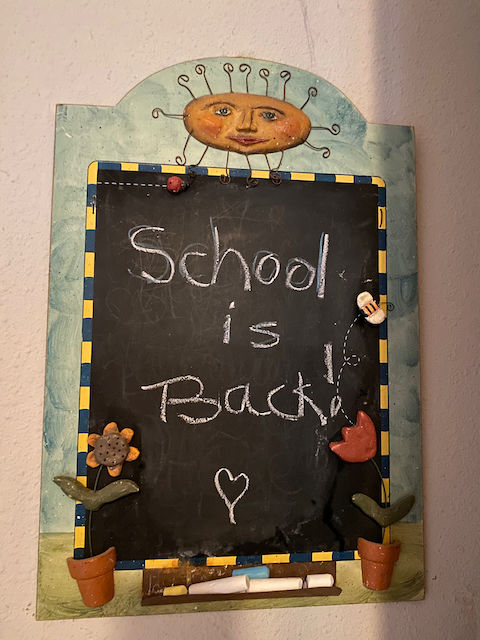 School
is
Back!